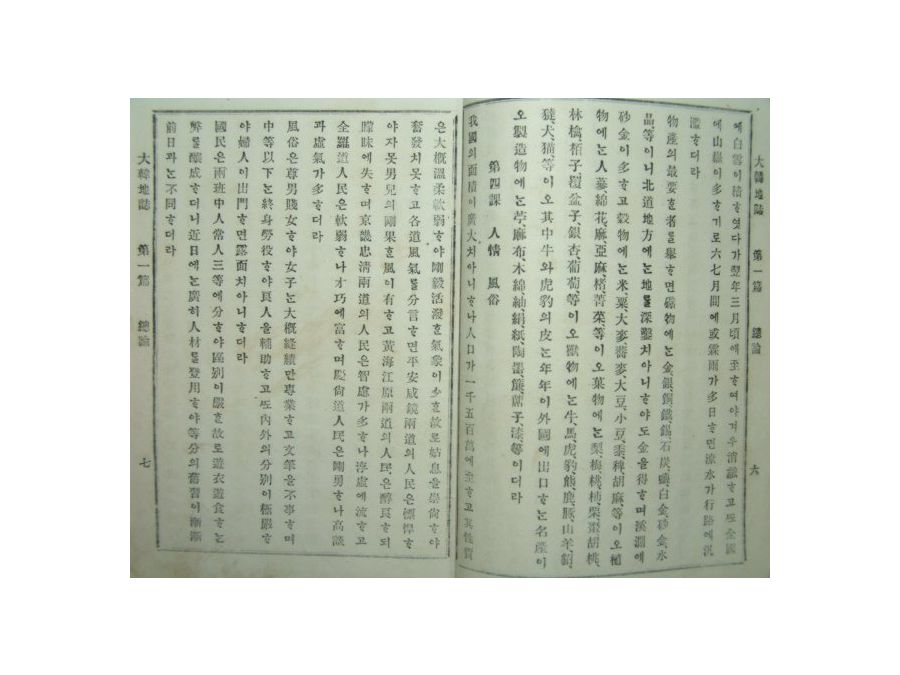 大韓地誌 第一篇 總論 六
에白雪이積ᄒᆞ엿다가翌年三月頃에至ᄒᆞ여야겨우消融ᄒᆞ고ᄯᅩ全國
에山嶽이多ᄒᆞ기로六七月間에或霖雨가多日ᄒᆞ면流水가行路에汎
濫ᄒᆞ더라
物産의最要ᄒᆞᆫ者ᄅᆞᆯ擧ᄒᆞ면礦物에ᄂᆞᆫ金、銀、銅、鐵、錫、石炭、鹽、白金、砂金、水
品等이니北道地方에ᄂᆞᆫ地ᄅᆞᆯ深鑿치아니ᄒᆞ야도金을得ᄒᆞ며溪澗에
砂金이多ᄒᆞ고穀物에ᄂᆞᆫ米、粟、大麥、蕎麥、大豆、小豆、黍、稗、胡麻等이오植
物에ᄂᆞᆫ人蔘、綿花、麻、亞麻、楮、菩菜、等이오菓物에ᄂᆞᆫ梨、梅、桃、柿、栗、棗、胡桃、
林檎、栢子、覆盆子、銀杏、葡萄、等이오獸物에ᄂᆞᆫ牛、馬、虎、豹、熊、鹿、豚、山羊、貂、
犬、猫、等이오其中牛와虎豹의皮ᄂᆞᆫ年年이外國에出口ᄒᆞᄂᆞᆫ名産이
오製造物에ᄂᆞᆫ苧、麻布、木綿、紬、絹、紙、陶器、簾、蓆子、漆、等이더라
第四課 人情 風俗
我國의面積이廣大치아니ᄒᆞ나人口가一千五百萬에至ᄒᆞ고其性質
은大槪溫柔軟弱ᄒᆞ야剛毅活潑ᄒᆞᆫ氣象이少ᄒᆞᆫ故로姑息을崇尙ᄒᆞ야
奮發치못ᄒᆞ고各道風氣ᄅᆞᆯ分言ᄒᆞ면平安咸鏡兩道의人民은慓悍ᄒᆞ
야자못男兒의剛果ᄒᆞᆫ風이有ᄒᆞ고黃海江原兩道의人民은醇良ᄒᆞ되
朦昧에失ᄒᆞ며京畿忠淸兩道의人民은智慮가多ᄒᆞ나浮虛에流ᄒᆞ고
全羅道人民은軟弱ᄒᆞ나才巧에富ᄒᆞ며慶尙道人民은剛勇ᄒᆞ나高談
과虛氣가多ᄒᆞ더라
風俗은尊男賤女ᄒᆞ야女子ᄂᆞᆫ大槪縫績만專業ᄒᆞ고文筆을不事ᄒᆞ며
中等以下ᄂᆞᆫ終身勞役ᄒᆞ야良人을輔助ᄒᆞ고ᄯᅩ內外의分別이極嚴ᄒᆞ
야婦人이出門ᄒᆞ면露面치아니ᄒᆞ더라
國民은兩班中人常人三等에分ᄒᆞ야區別이嚴ᄒᆞᆫ故로遊衣遊食ᄒᆞᄂᆞᆫ
弊ᄅᆞᆯ釀成ᄒᆞ더니近日에ᄂᆞᆫ廣히人材ᄅᆞᆯ登用ᄒᆞ야等分의舊習이漸漸
前日과ᄂᆞᆫ不同ᄒᆞ더라
大韓地誌 第一篇 總論 七